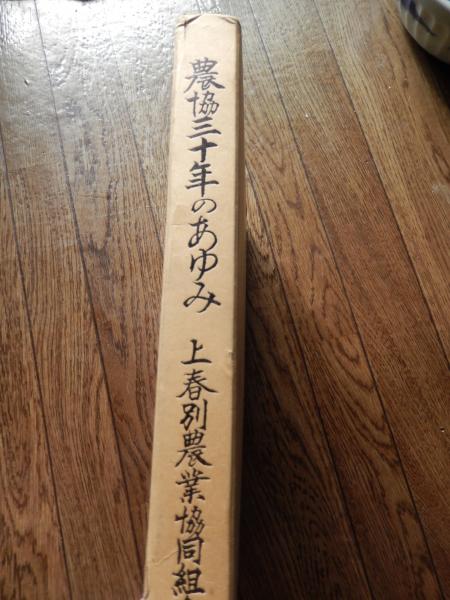 農協三十年のあゆみ 上春別農業協同組